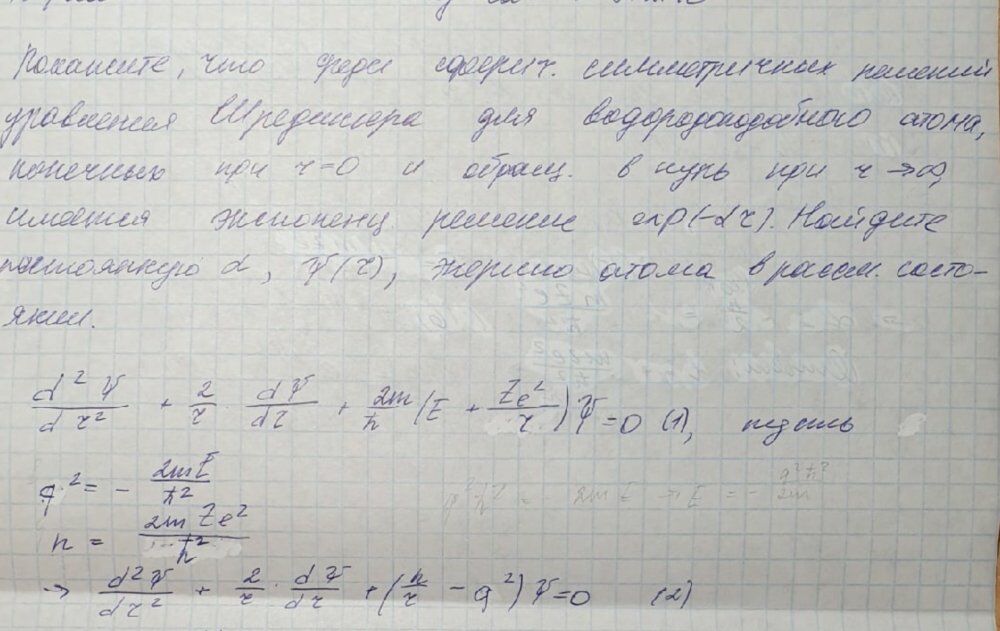 Покажите, что среди сферич. симметричных решений
уравнения Шредингера для водородоподобного атома,
конечных при r=0 и обращ. в нуль при r→∞,
имеется экспоненц. решение exp(-αr). Найдите
постоянную α, Ψ(r), энергию атома в рассм. состо-
янии.
d²Ψ/dr² + 2/r · dΨ/dr + 2m/ħ (E + Ze²/r)Ψ=0 (1), пусть
q² = - 2mE/ħ²
q²ħ² = - 2mE → E = - q²ħ²/2m
n = 2mZe²/ħ²
→ d²Ψ/dr² + 2/r · dΨ/dr + (n/r - q²)Ψ=0 (2)